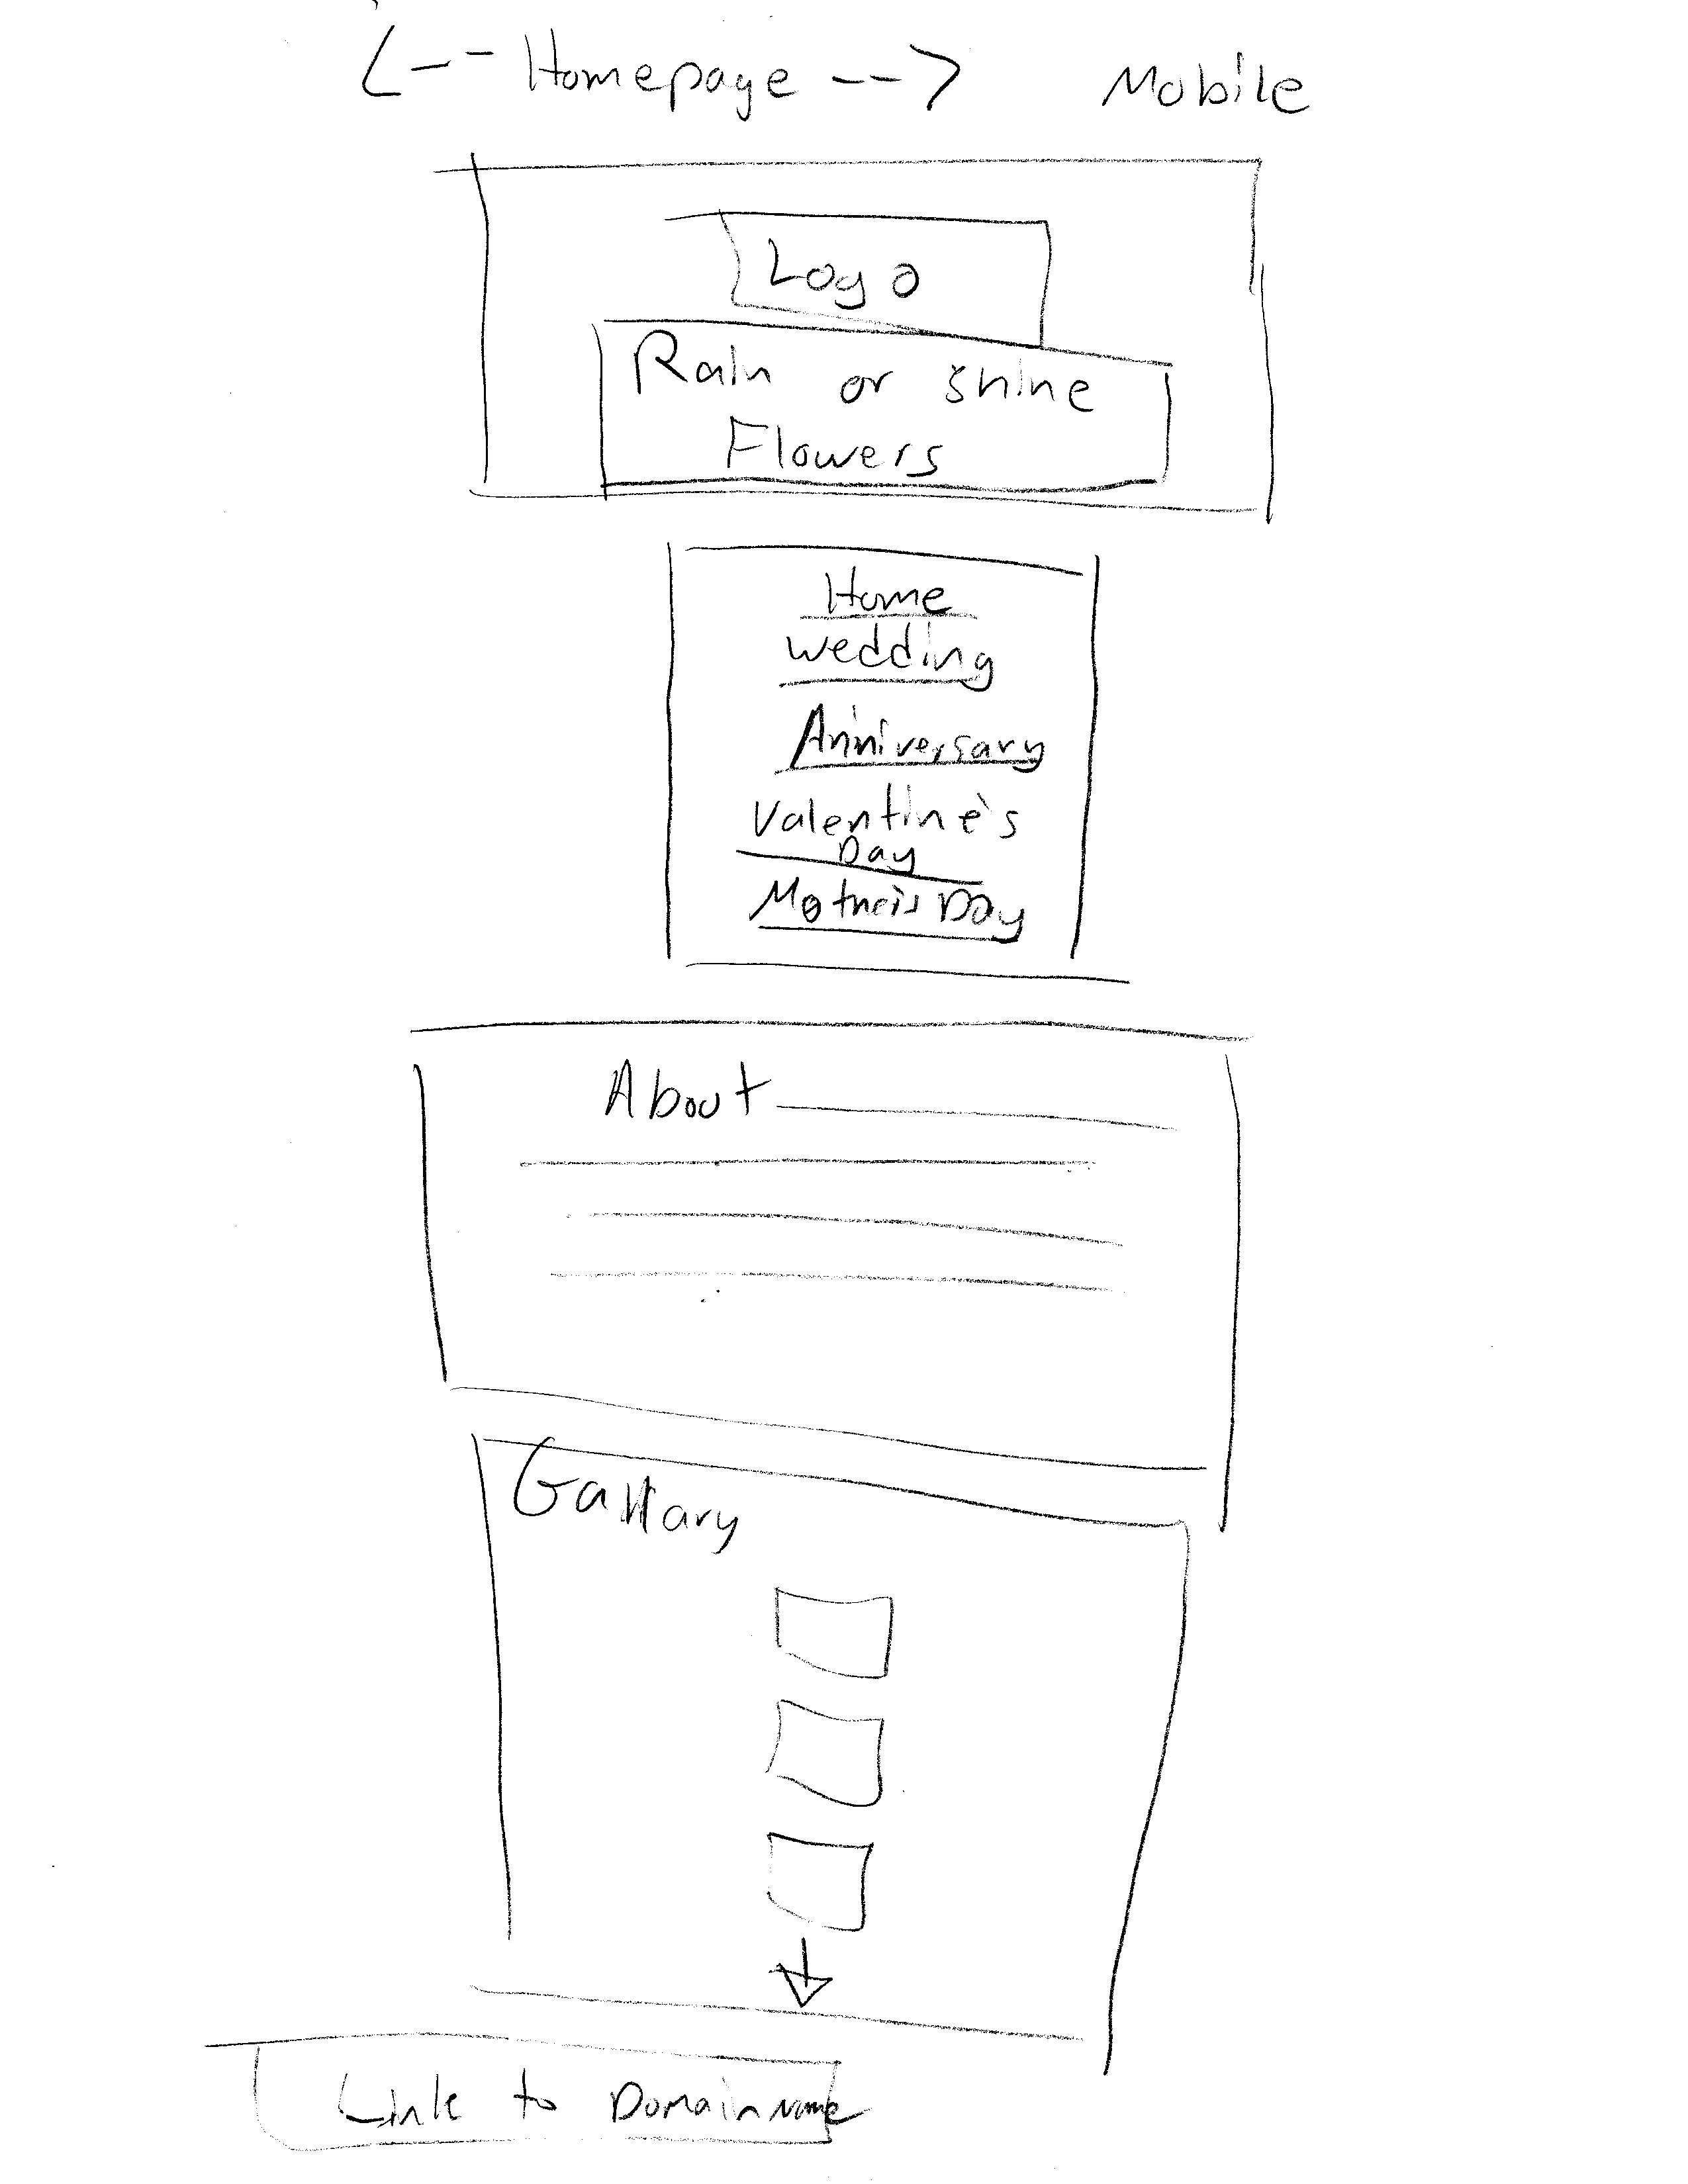 <-- Homepage --> Mobile
Logo
Rain or shine
Flowers
Home
wedding
Anniversary
Valentine's
Day
Mother's Day
About
Gallary
Link to Domain name